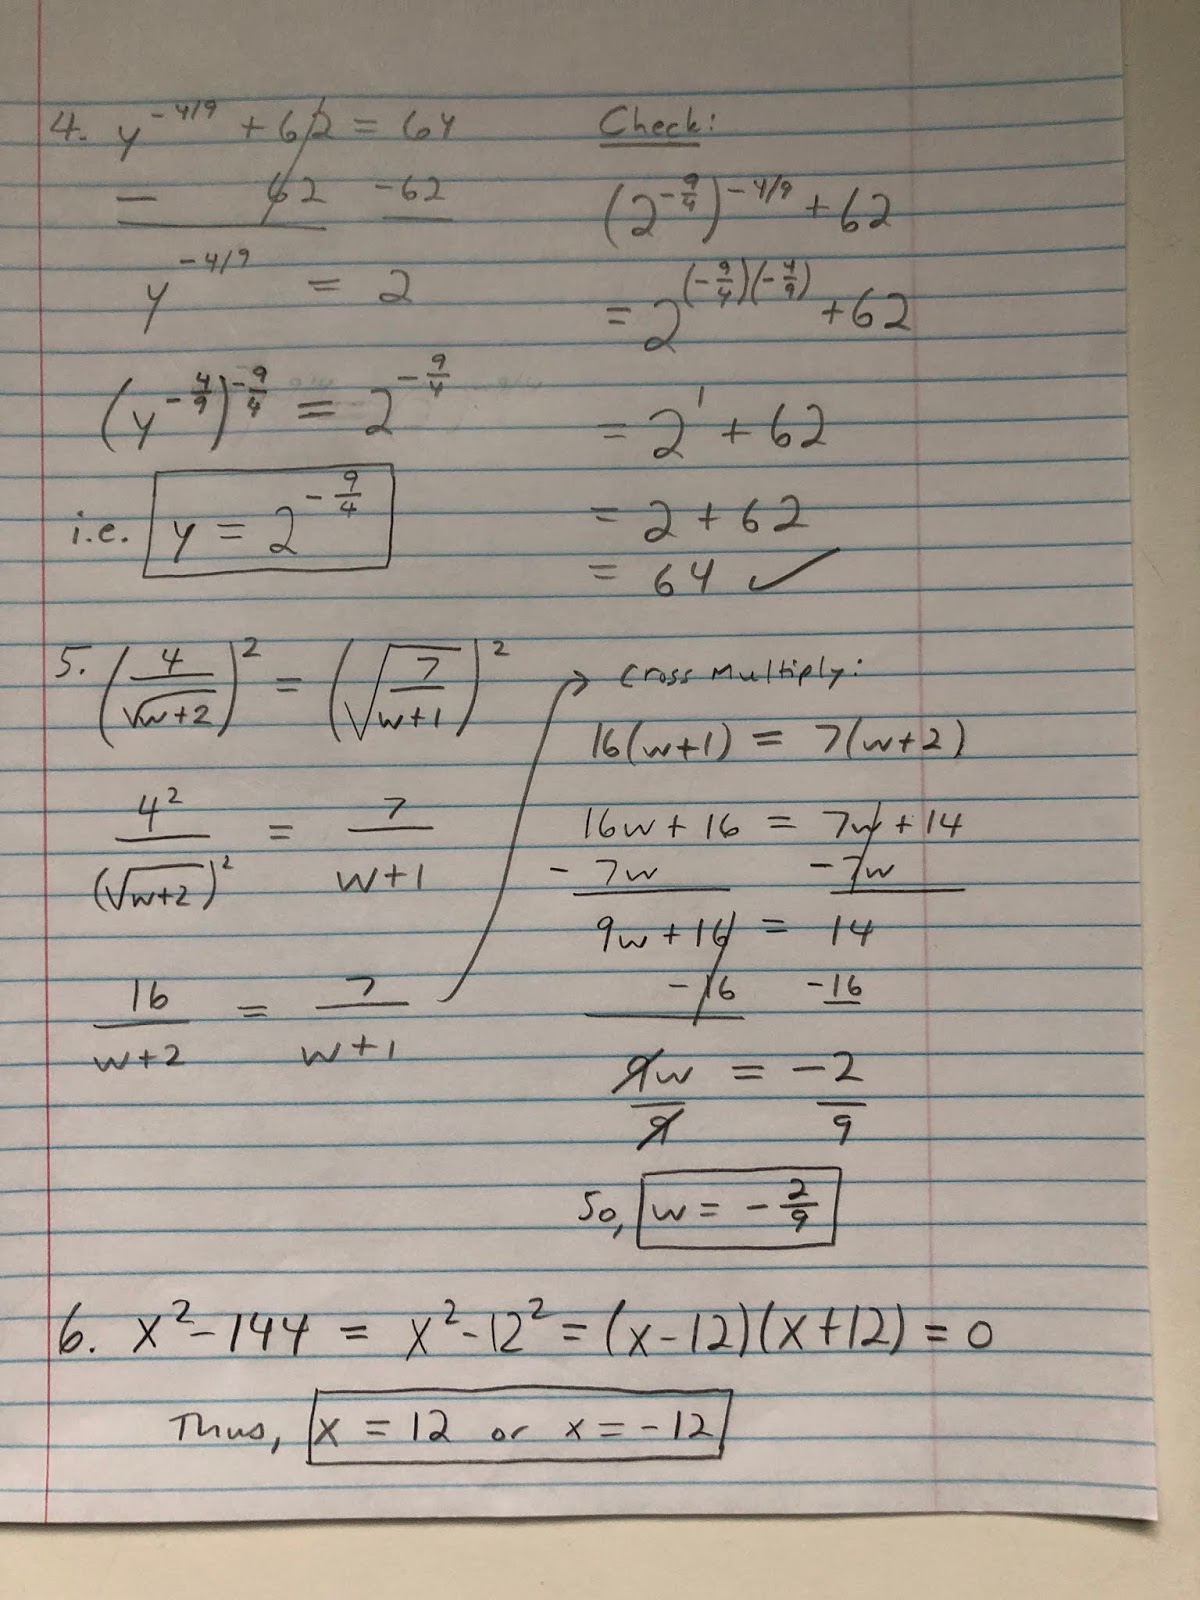 4. y^(-4/9) + 62 = 64
- 62 -62
y^(-4/9) = 2
(y^(-4/9))^(-9/4) = 2^(-9/4)
i.e. y = 2^(-9/4)
Check:
(2^(-9/4))^(-4/9) + 62
= 2^((-9/4)(-4/9)) + 62
= 2^1 + 62
= 2 + 62
= 64 ✓
5. (4/√(w+2))^2 = (√(7/(w+1)))^2
4^2/(√(w+2))^2 = 7/(w+1)
16/(w+2) = 7/(w+1)
→ Cross Multiply:
16(w+1) = 7(w+2)
16w + 16 = 7w + 14
- 7w - 7w
9w + 16 = 14
- 16 - 16
9w/9 = -2/9
So, w = -2/9
6. x^2 - 144 = x^2 - 12^2 = (x-12)(x+12) = 0
Thus, x = 12 or x = -12